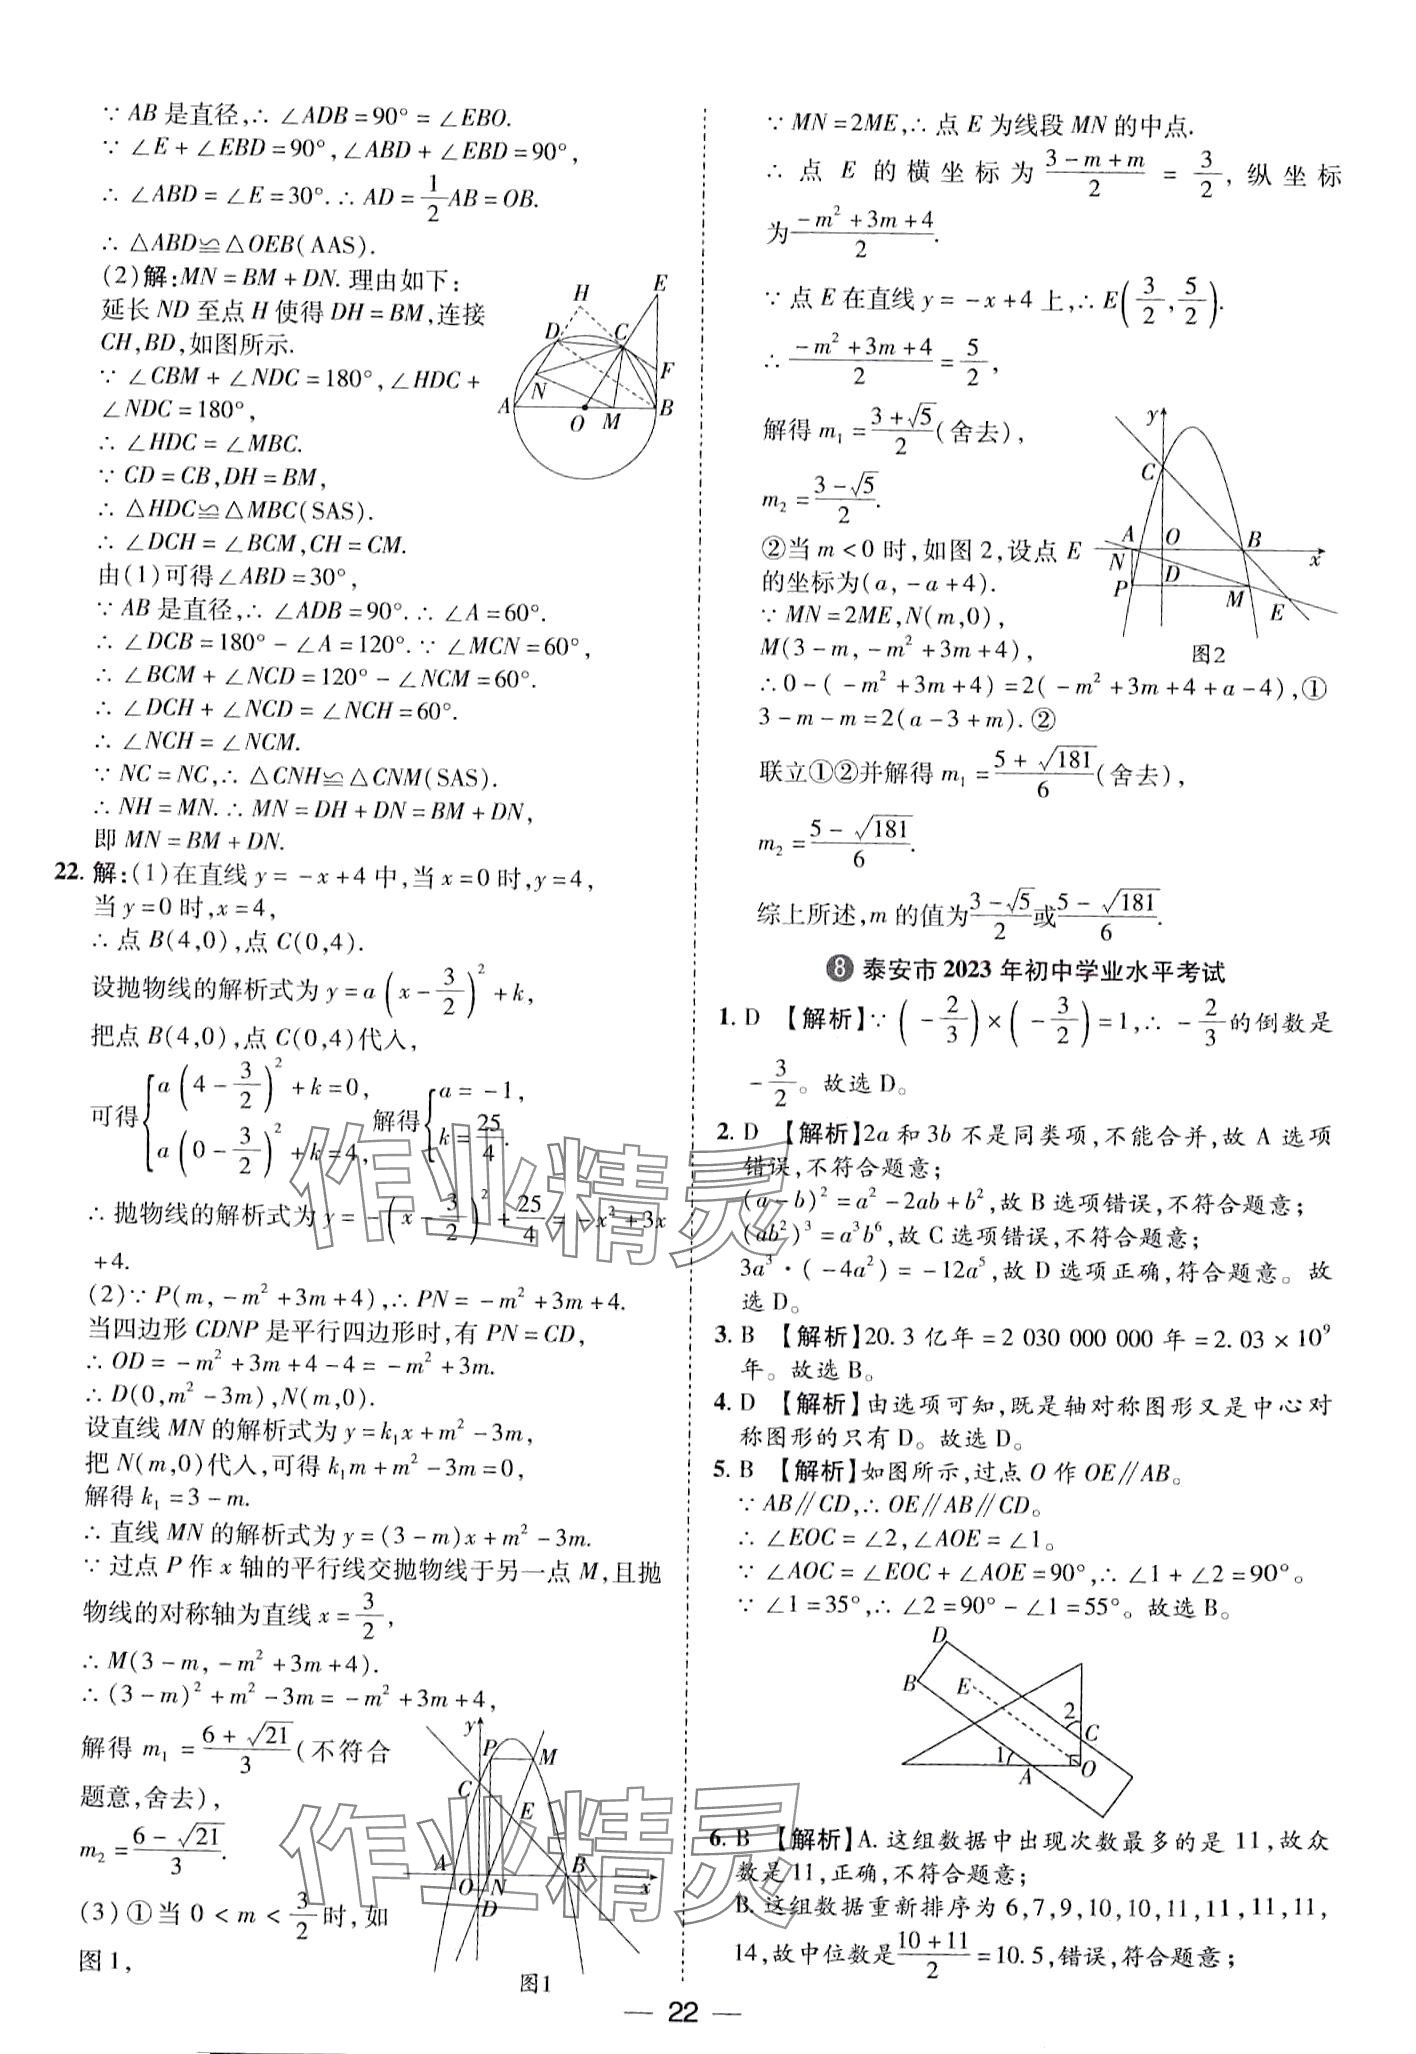 ∵ AB 是直径,∴ ∠ADB = 90° = ∠EBO.
∵ ∠E + ∠EBD = 90°, ∠ABD + ∠EBD = 90°,
∴ ∠ABD = ∠E = 30°. ∴ AD = 1/2 AB = OB.
∴ △ABD≌△OEB(AAS).
(2)解:MN = BM + DN. 理由如下:
延长 ND 至点 H 使得 DH = BM,连接
CH,BD,如图所示.
∵ ∠CBM + ∠NDC = 180°, ∠HDC +
∠NDC = 180°,
∴ ∠HDC = ∠MBC.
∵ CD = CB, DH = BM,
∴ △HDC≌△MBC(SAS).
∴ ∠DCH = ∠BCM, CH = CM.
由(1)可得∠ABD = 30°,
∵ AB 是直径,∴ ∠ADB = 90°. ∴ ∠A = 60°.
∴ ∠DCB = 180° - ∠A = 120°. ∵ ∠MCN = 60°,
∴ ∠BCM + ∠NCD = 120° - ∠NCM = 60°.
∴ ∠DCH + ∠NCD = ∠NCH = 60°.
∴ ∠NCH = ∠NCM.
∵ NC = NC, ∴ △CNH≌△CNM(SAS).
∴ NH = MN. ∴ MN = DH + DN = BM + DN,
即 MN = BM + DN.
H
E
D
C
N
F
A
O
M
B
22. 解:(1)在直线 y = -x + 4 中,当 x = 0 时, y = 4,
当 y = 0 时, x = 4,
∴ 点 B(4,0),点 C(0,4).
设抛物线的解析式为 y = a(x - 3/2)² + k,
把点 B(4,0),点 C(0,4)代入,
可得{a(4 - 3/2)² + k = 0, a(0 - 3/2)² + k = 4, 解得{a = -1, k = 25/4.
∴ 抛物线的解析式为 y = -(x - 3/2)² + 25/4 = -x² + 3x
+4.
(2)∵ P(m, -m² + 3m + 4), ∴ PN = -m² + 3m + 4.
当四边形 CDNP 是平行四边形时,有 PN = CD,
∴ OD = -m² + 3m + 4 - 4 = -m² + 3m.
∴ D(0, m² - 3m), N(m,0).
设直线 MN 的解析式为 y = k₁x + m² - 3m,
把 N(m,0)代入,可得 k₁m + m² - 3m = 0,
解得 k₁ = 3 - m.
∴ 直线 MN 的解析式为 y = (3 - m)x + m² - 3m.
∵ 过点 P 作 x 轴的平行线交抛物线于另一点 M,且抛
物线的对称轴为直线 x = 3/2,
∴ M(3 - m, -m² + 3m + 4).
∴ (3 - m)² + m² - 3m = -m² + 3m + 4,
解得 m₁ = (6 + √21)/3 (不符合
题意,舍去),
m₂ = (6 - √21)/3.
(3)①当 0 < m < 3/2 时,如
图 1,
y
P
M
C
E
A
O
N
B
x
D
图1
∵ MN = 2ME, ∴ 点 E 为线段 MN 的中点.
∴ 点 E 的横坐标为 (3 - m + m)/2 = 3/2, 纵坐标
为 (-m² + 3m + 4)/2.
∵ 点 E 在直线 y = -x + 4 上, ∴ E(3/2, 5/2).
∴ (-m² + 3m + 4)/2 = 5/2,
解得 m₁ = (3 + √5)/2 (舍去),
m₂ = (3 - √5)/2.
②当 m < 0 时,如图 2,设点 E
的坐标为(a, -a + 4).
∵ MN = 2ME, N(m,0),
M(3 - m, -m² + 3m + 4),
∴ 0 - (-m² + 3m + 4) = 2(-m² + 3m + 4 + a - 4),①
3 - m - m = 2(a - 3 + m).②
联立①②并解得 m₁ = (5 + √181)/6 (舍去),
m₂ = (5 - √181)/6.
综上所述, m 的值为 (3 - √5)/2 或 (5 - √181)/6.
y
C
A
O
B
x
N
D
P
M
E
图2
8 泰安市 2023 年初中学业水平考试
1. D 【解析】∵ (-2/3) × (-3/2) = 1, ∴ -2/3 的倒数是
-3/2。故选 D。
2. D 【解析】2a 和 3b 不是同类项,不能合并,故 A 选项
错误,不符合题意;
(a - b)² = a² - 2ab + b²,故 B 选项错误,不符合题意;
(ab²)³ = a³b⁶,故 C 选项错误,不符合题意;
3a³·(-4a²) = -12a⁵,故 D 选项正确,符合题意。故
选 D。
3. B 【解析】20.3 亿年 = 2 030 000 000 年 = 2.03 × 10⁹
年。故选 B。
4. D 【解析】由选项可知,既是轴对称图形又是中心对
称图形的只有 D。故选 D。
5. B 【解析】如图所示,过点 O 作 OE∥AB。
∵ AB∥CD, ∴ OE∥AB∥CD。
∴ ∠EOC = ∠2, ∠AOE = ∠1。
∵ ∠AOC = ∠EOC + ∠AOE = 90°, ∴ ∠1 + ∠2 = 90°。
∵ ∠1 = 35°, ∴ ∠2 = 90° - ∠1 = 55°。故选 B。
D
B
E
2
C
1
A
O
6. B 【解析】A. 这组数据中出现次数最多的是 11,故众
数是 11,正确,不符合题意;
B. 这组数据重新排序为 6,7,9,10,10,11,11,11,11,
14,故中位数是 (10 + 11)/2 = 10.5,错误,符合题意;
作业精灵
作业精灵
— 22 —